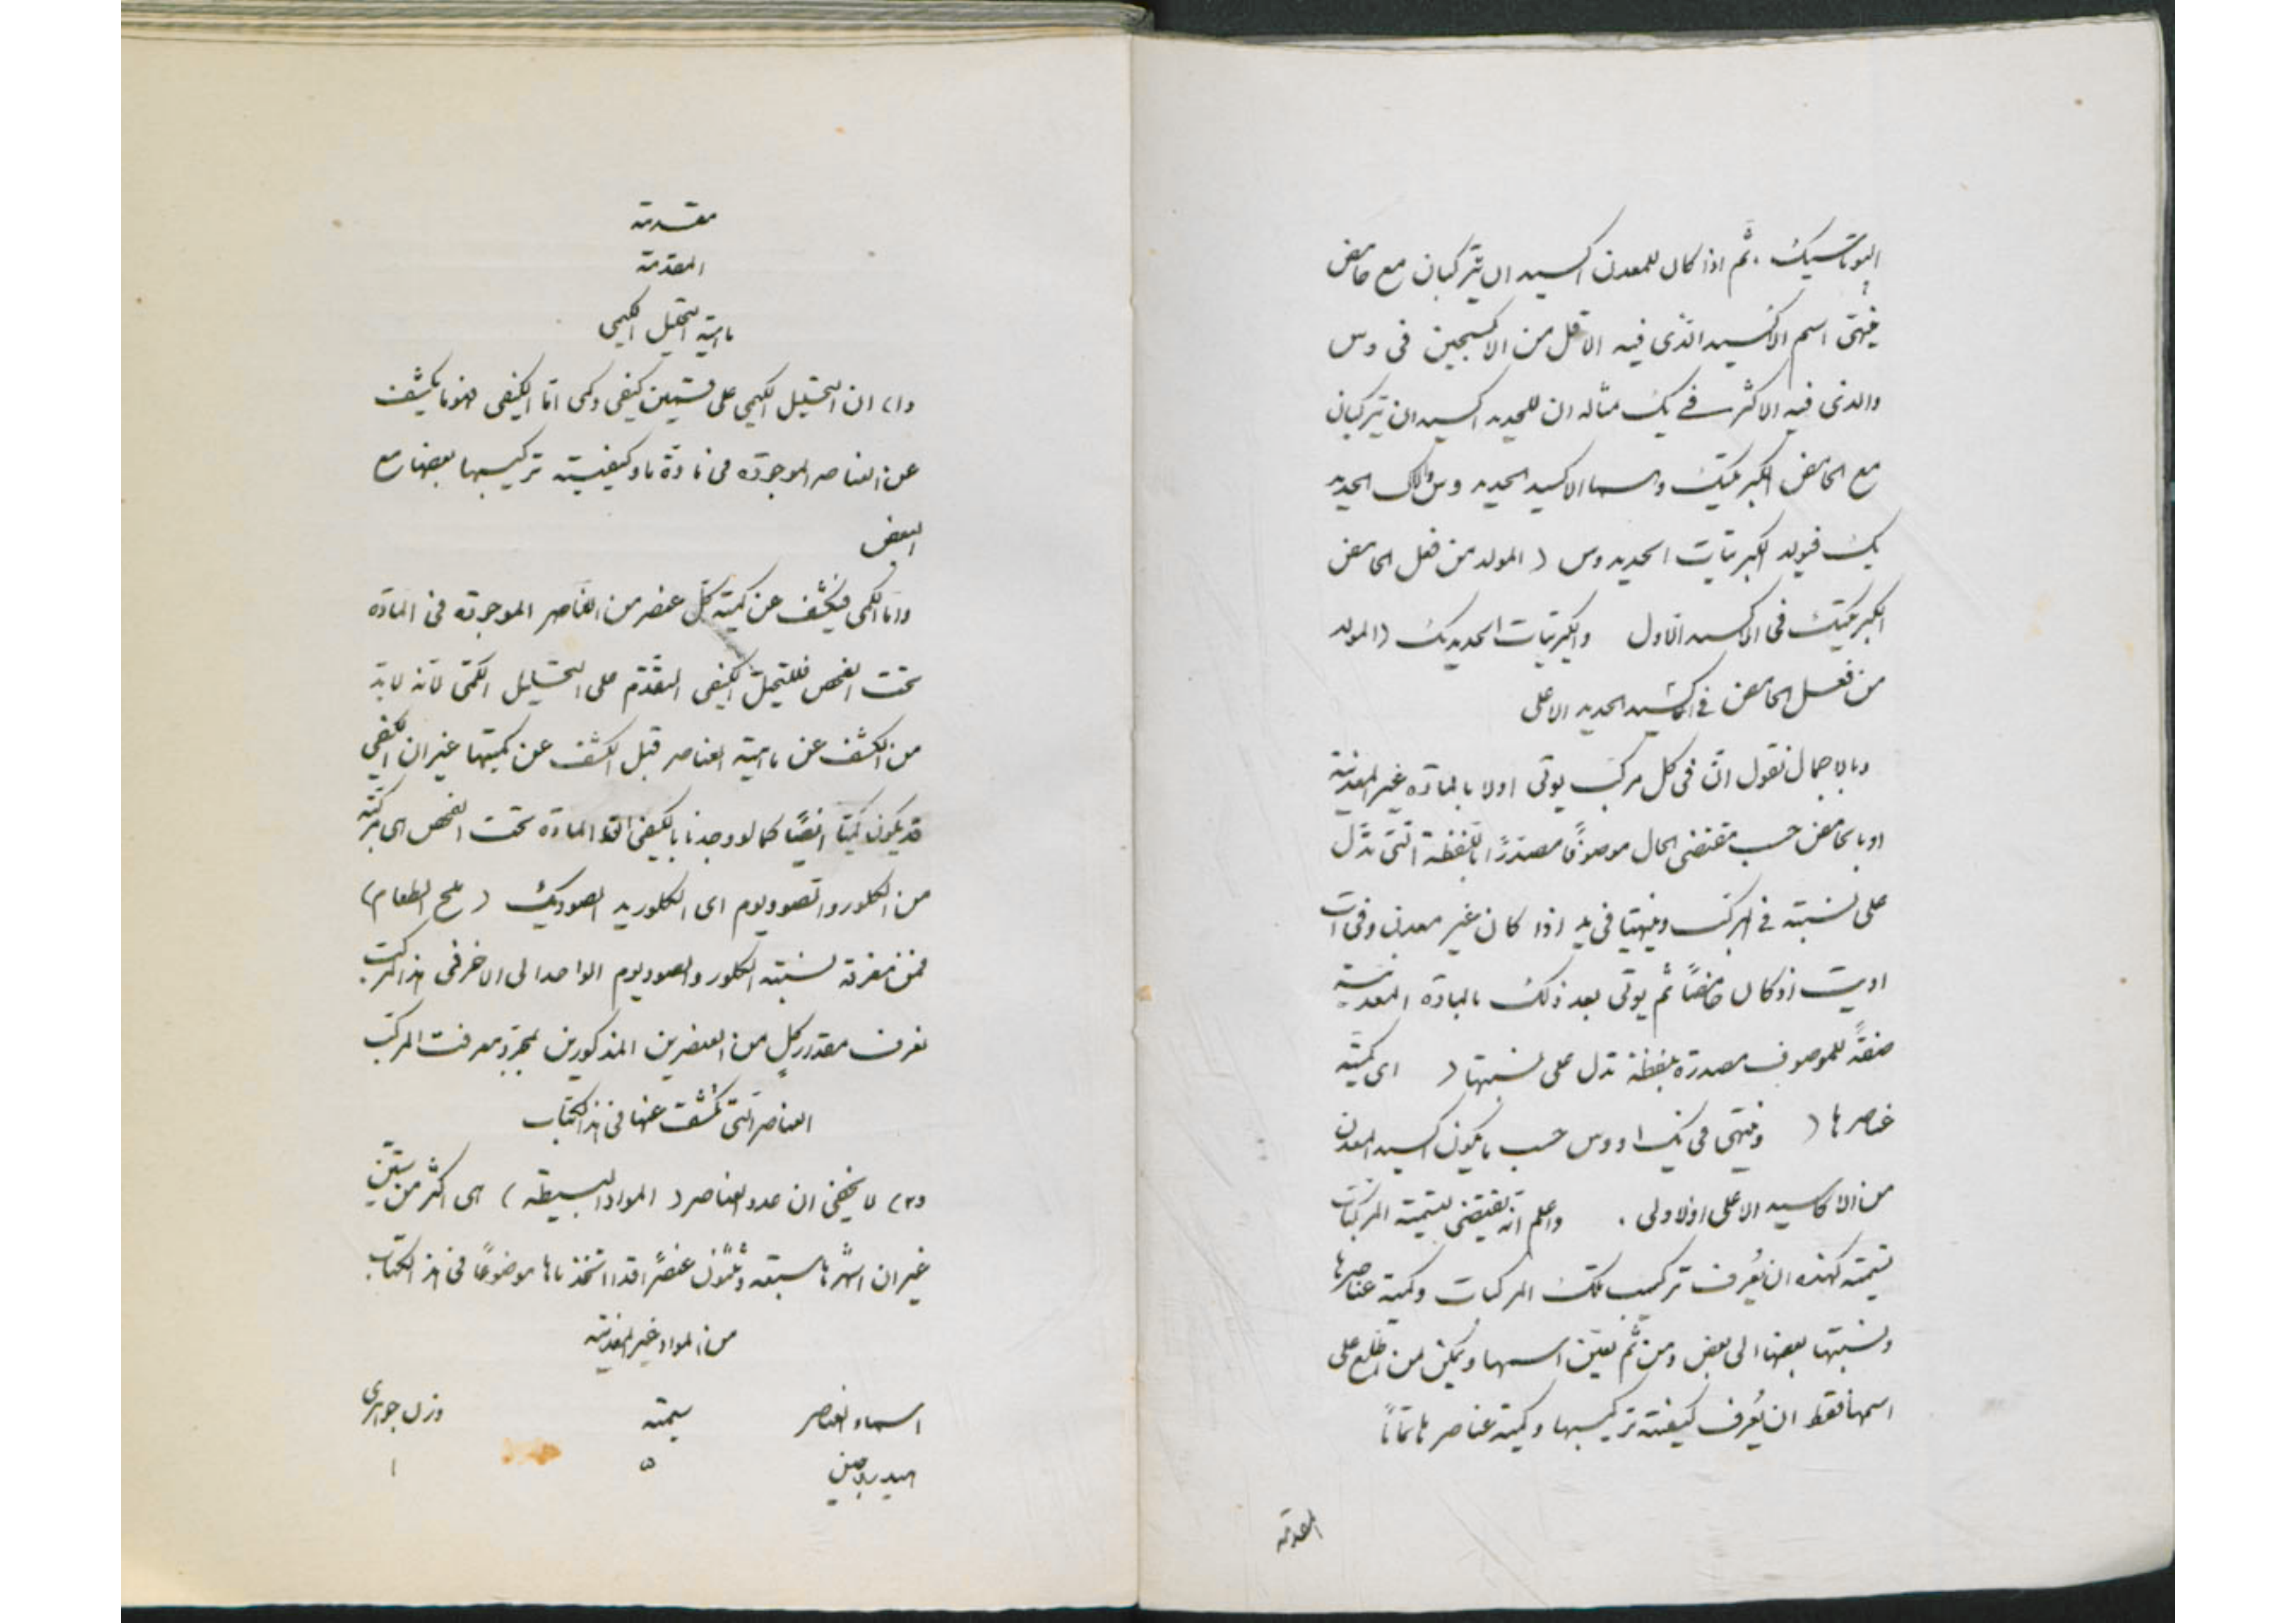 البوتاسيك . ثم اذا كان للمعدن اكسيدان يتركبان مع حامض
فينتهى اسم الاكسيد الذى فيه الاقل من الاكسجين فى وس
والذى فيه الاكثر فے يك مثاله ان للحديد اكسيدان يتركبان
مع الحامض الكبريتيك واسما الاكسيد الحديد وس والاك الحديد
يك فيولد الكبريتات الحديدوس ( المولد من فعل الحامض
الكبريتيك فى الاكسيد الاول والكبريتات الحديديك ( المولد
من فعل الحامض فے اكسيد الحديد الاعلى
وبالاجمال نقول ان فى كل مركب يوتى اولا بالمادة غير المعدنية
او بالحامض حسب مقتضى الحال موصوفًا مصدرًا باللفظة التى تدل
على نسبته فے المركب ومنتهيا فى يد اذا كان غير معدن وفى ات
اويت اذ كان حامضًا ثم يوتى بعد ذلك بالمادة المعدنية
صفةً للموصوف مصدرة بلفظة تدل على نسبتها ( اى كمية
عناصرها ) وتنتهى فى يك او وس حسب ما يكون اكسيد المعدن
من الاكاسيد الاعلى او الاولى . واعلم انه تقتضى لتسمية المركبات
تسمية كهذه ان يُعرف تركيب تلك المركبات وكمية عناصرها
ونسبتها بعضها الى بعض ومن ثم تعين اسمها ويمكن لمن اطلع على
اسمها فقط ان يُعرف كيفية تركيبها وكمية عناصرها تمامًا
المقدمة
مقدمة
المقدمة
ماهية التحليل الكيمى
(١) ان التحليل الكيمى على قسمين كيفى وكمى اما الكيفى فهو ما يكشف
عن العناصر الموجودة فى مادة ما وكيفية تركيبها بعضها مع
البعض
واما الكمى فيكشف عن كمية كل عنصر من العناصر الموجودة فى المادة
تحت الفحص فللتحليل الكيفى التقدم على التحليل الكمى لانه لابد
من الكشف عن ماهية العناصر قبل الكشف عن كميتها غير ان الكيفى
قد يكون كميًا ايضًا كما لو وجدنا بالكيفى ان المادة تحت الفحص هى مركبة
من الكلور والصوديوم اى الكلوريد الصوديك ( ملح الطعام )
فمن معرفة نسبته الكلور والصوديوم الواحد الى الاخر فى هذا المركب
نعرف مقدار كلٍ من العنصرين المذكورين بمجرد معرفت المركب
العناصر التى تكشف عنها فى هذا الكتاب
(٢) لا يخفى ان عدد العناصر ( المواد البسيطة ) هى اكثر من ستين
غير ان اشهرها سبعة وثلثون عنصرًا قد اتخذناها موضوعًا فى هذا الكتاب
من المواد غير المعدنية
اسماء العناصر سمته وزن جوهرى
الهيدروجين ٥ ١